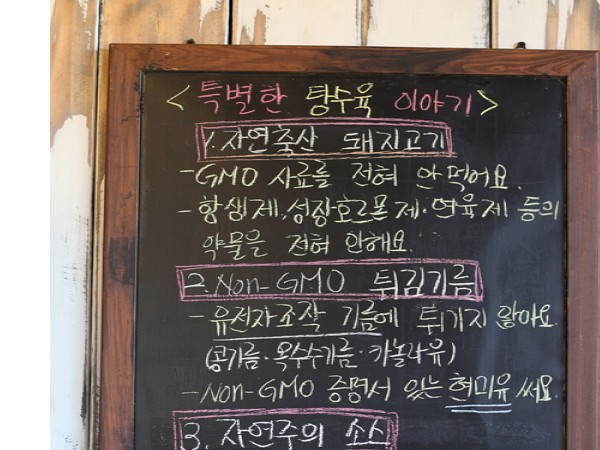 <특별한 탕수육 이야기>
1. 자연축산 돼지고기
-GMO 사료를 전혀 안 먹어요.
-항생제.성장호르몬제.연육제 등의
약물을 전혀 안해요.
2. Non-GMO 튀김기름
- 유전자조작 기름에 튀기지 않아요.
(콩기름·옥수수기름·카놀라유)
-Non-GMO 증명서 있는 현미유 써요.
3. 자연주의 소스